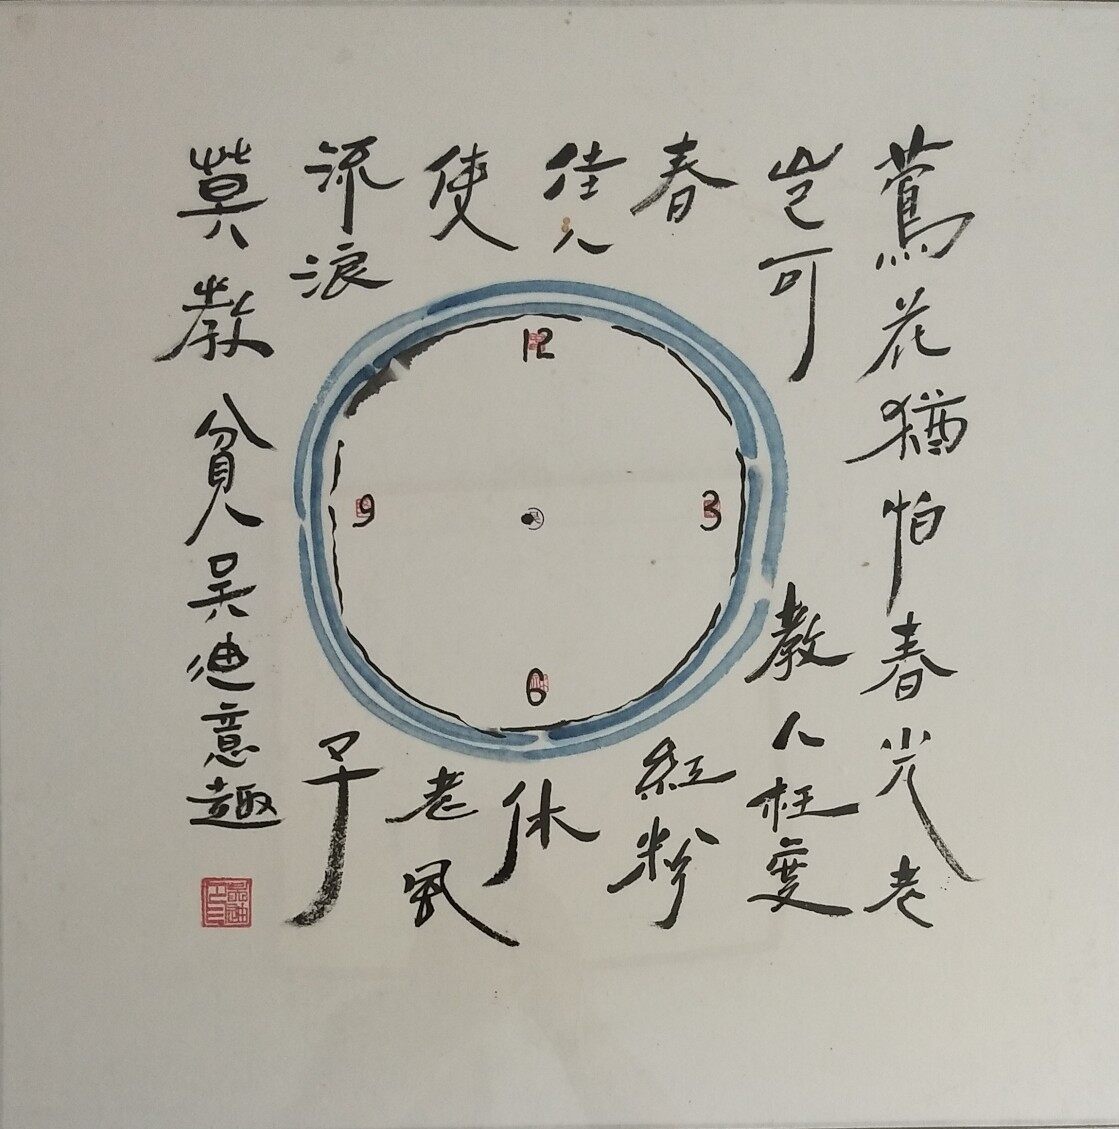 鶯花猶怕春光老
岂可教人枉度
春紅粉
佳人休
使老風
流浪子
莫教貧吴迪意趣
12
9
3
6